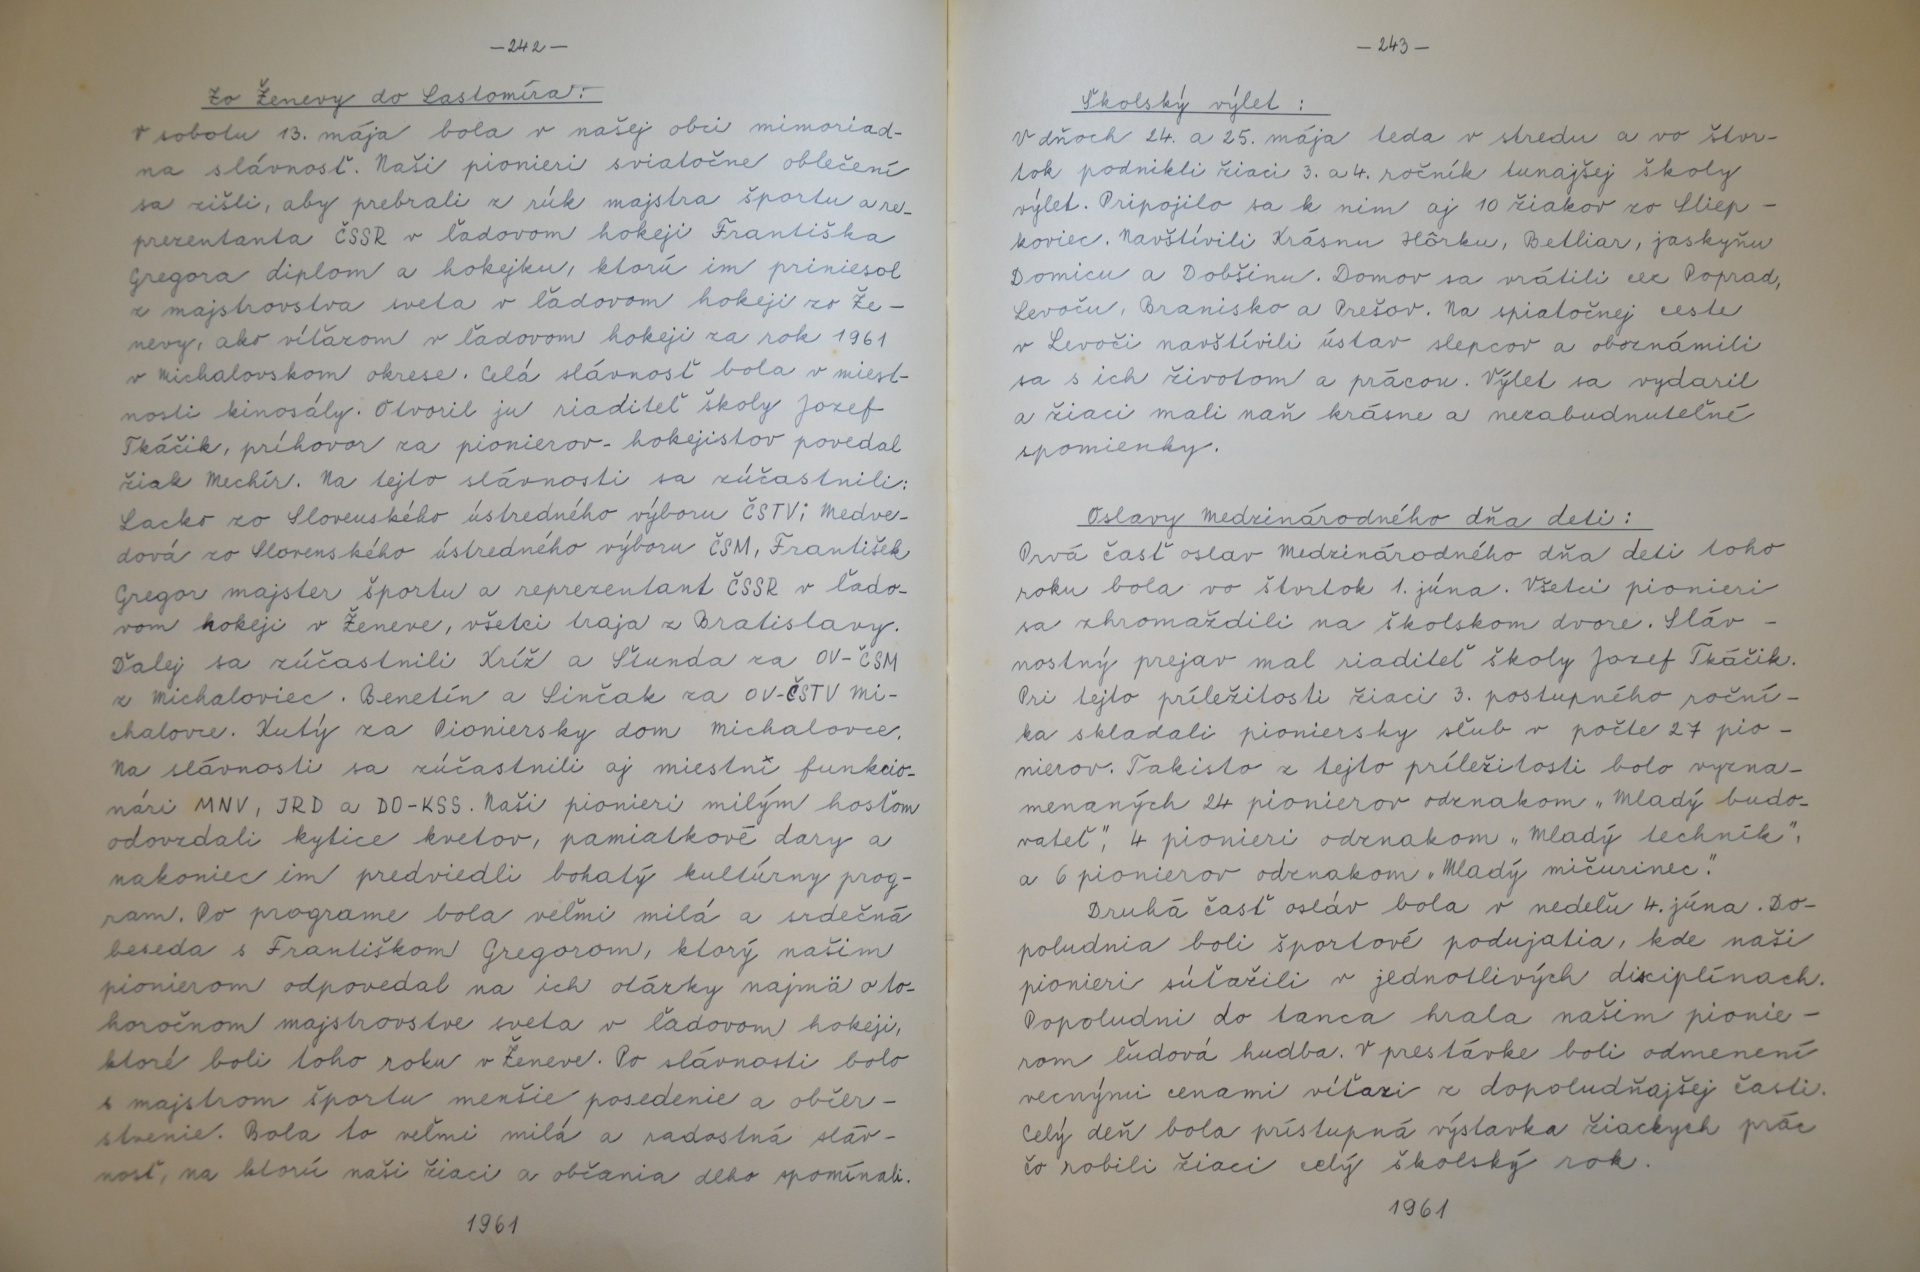 —242—
Zo Ženevy do Lastomíra:
V sobotu 13. mája bola v našej obci mimoriad-
na slávnosť. Naši pionieri sviatočne oblečení
sa zišli, aby prebrali z rúk majstra športu a re-
prezentanta ČSSR v ľadovom hokeji Františka
Gregora diplom a hokejku, ktorú im priniesol
z majstrovstva sveta v ľadovom hokeji zo Že-
nevy, ako víťazom v ľadovom hokeji za rok 1961
v Michalovskom okrese. Celá slávnosť bola v miest-
nosti kinosály. Otvoril ju riaditeľ školy Jozef
Tkáčik, príhovor za pionierov-hokejistov povedal
žiak Mechír. Na tejto slávnosti sa zúčastnili:
Lacko zo Slovenského ústredného výboru ČSTV; Medve-
dová zo Slovenského ústredného výboru ČSM, František
Gregor majster športu a reprezentant ČSSR v ľado-
vom hokeji v Ženeve, všetci traja z Bratislavy.
Ďalej sa zúčastnili Kríž a Štunda za OV-ČSM
z Michaloviec. Benetín a Sinčak za OV-ČSTV Mi-
chalovce. Kutý za Pioniersky dom Michalovce.
Na slávnosti sa zúčastnili aj miestni funkcio-
nári MNV, JRD a DO-KSS. Naši pionieri milým hosťom
odovzdali kytice kvetov, pamiatkové dary a
nakoniec im predviedli bohatý kultúrny prog-
ram. Po programe bola veľmi milá a srdečná
beseda s Františkom Gregorom, ktorý našim
pionierom odpovedal na ich otázky najmä o to-
horočnom majstrovstve sveta v ľadovom hokeji,
ktoré boli toho roku v Ženeve. Po slávnosti bolo
s majstrom športu menšie posedenie a občer-
stvenie. Bola to veľmi milá a radostná sláv-
nosť, na ktorú naši žiaci a občania dlho spomínali.
1961
—243—
Školský výlet:
V dňoch 24. a 25. mája teda v stredu a vo štvr-
tok podnikli žiaci 3. a 4. ročník tunajšej školy
výlet. Pripojilo sa k nim aj 10 žiakov zo Sliep-
koviec. Navštívili Krásnu Hôrku, Betliar, jaskyňu
Domicu a Dobšinu. Domov sa vrátili cez Poprad,
Levoču, Branisko a Prešov. Na spiatočnej ceste
v Levoči navštívili ústav slepcov a oboznámili
sa s ich životom a prácou. Výlet sa vydaril
a žiaci mali naň krásne a nezabudnuteľné
spomienky.
Oslavy Medzinárodného dňa deti:
Prvá časť oslav Medzinárodného dňa deti toho
roku bola vo štvrtok 1. júna. Všetci pionieri
sa zhromaždili na školskom dvore. Sláv-
nostný prejav mal riaditeľ školy Jozef Tkáčik.
Pri tejto príležitosti žiaci 3. postupného roční-
ka skladali pioniersky sľub v počte 27 pio-
nierov. Takisto z tejto príležitosti bolo vyzna-
menaných 24 pionierov odznakom „Mladý budo-
vateľ", 4 pionieri odznakom „Mladý techník",
a 6 pionierov odznakom „Mladý mičurinec".
Druhá časť osláv bola v nedeľu 4. júna. Do-
poludnia boli športové podujatia, kde naši
pionieri súťažili v jednotlivých disciplínach.
Popoludni do tanca hrala našim pionie-
rom ľudová hudba. V prestávke boli odmenení
vecnými cenami víťazi z dopoludňajšej časti.
Celý deň bola prístupná výstavka žiackych prác
čo robili žiaci celý školský rok.
1961